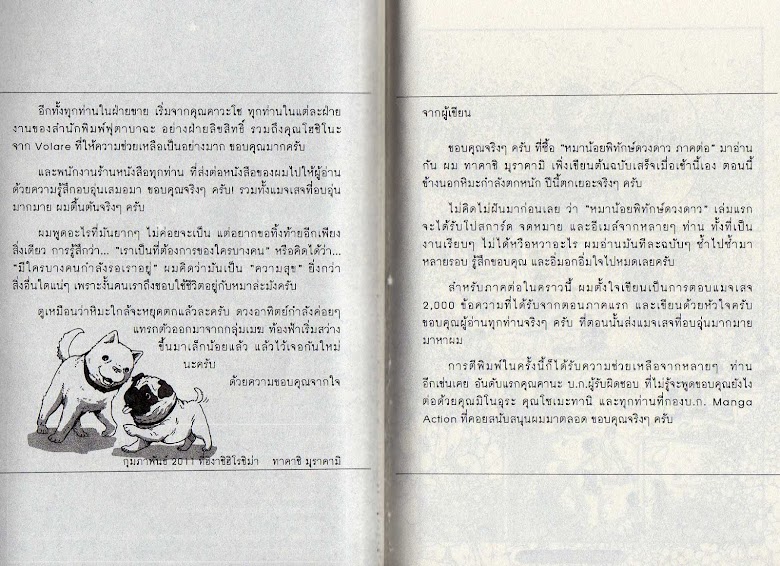 จากผู้เขียน
ขอบคุณจริงๆ ครับ ที่ซื้อ "หมาน้อยพิทักษ์ดวงดาว ภาคต่อ" มาอ่าน
กัน ผม ทาคาชิ มุราคามิ เพิ่งเขียนต้นฉบับเสร็จเมื่อเช้านี้เอง ตอนนี้
ข้างนอกหิมะกำลังตกหนัก ปีนี้ตกเยอะจริงๆ ครับ
ไม่คิดไม่ฝันมาก่อนเลย ว่า "หมาน้อยพิทักษ์ดวงดาว" เล่มแรก
จะได้รับโปสการ์ด จดหมาย และอีเมล์จากหลายๆ ท่าน ทั้งที่เป็น
งานเรียบๆ ไม่ได้หวือหวาอะไร ผมอ่านมันทีละฉบับๆ ซ้ำไปซ้ำมา
หลายรอบ รู้สึกขอบคุณ และอิ่มอกอิ่มใจไปหมดเลยครับ
สำหรับภาคต่อในคราวนี้ ผมตั้งใจเขียนเป็นการตอบแมจเสจ
2,000 ข้อความที่ได้รับจากตอนภาคแรก และเขียนด้วยหัวใจครับ
ขอบคุณผู้อ่านทุกท่านจริงๆ ครับ ที่ตอนนั้นส่งแมจเสจที่อบอุ่นมากมาย
มาหาผม
การตีพิมพ์ในครั้งนี้ก็ได้รับความช่วยเหลือจากหลายๆ ท่าน
อีกเช่นเคย อันดับแรกคุณคานะ บ.ก.ผู้รับผิดชอบ ที่ไม่รู้จะพูดขอบคุณยังไง
ต่อด้วยคุณมิโนอุระ คุณโซเมะทานิ และทุกท่านที่กองบ.ก. Manga
Action ที่คอยสนับสนุนผมมาตลอด ขอบคุณจริงๆ ครับ
อีกทั้งทุกท่านในฝ่ายขาย เริ่มจากคุณคาวะโช ทุกท่านในแต่ละฝ่าย
งานของสำนักพิมพ์ฟุตาบาฉะ อย่างฝ่ายลิขสิทธิ์ รวมถึงคุณโฮชิโนะ
จาก Volare ที่ให้ความช่วยเหลือเป็นอย่างมาก ขอบคุณมากครับ
และพนักงานร้านหนังสือทุกท่าน ที่ส่งต่อหนังสือของผมไปให้ผู้อ่าน
ด้วยความรู้สึกอบอุ่นเสมอมา ขอบคุณจริงๆ ครับ! รวมทั้งแมจเสจที่อบอุ่น
มากมาย ผมตื้นตันจริงๆ ครับ
ผมพูดอะไรที่มันยากๆ ไม่ค่อยจะเป็น แต่อยากขอทิ้งท้ายอีกเพียง
สิ่งเดียว การรู้สึกว่า... "เราเป็นที่ต้องการของใครบางคน" หรือคิดได้ว่า...
"มีใครบางคนกำลังรอเราอยู่" ผมคิดว่ามันเป็น "ความสุข" ยิ่งกว่า
สิ่งอื่นใดแน่ๆ เพราะงั้นคนเราถึงชอบใช้ชีวิตอยู่กับหมาล่ะมังครับ
ดูเหมือนว่าหิมะใกล้จะหยุดตกแล้วละครับ ดวงอาทิตย์กำลังค่อยๆ
แทรกตัวออกมาจากกลุ่มเมฆ ท้องฟ้าเริ่มสว่าง
ขึ้นมาเล็กน้อยแล้ว แล้วไว้เจอกันใหม่
นะครับ
ด้วยความขอบคุณจากใจ
กุมภาพันธ์ 2011 ที่อิงาชิฮิโรชิม่า ทาคาชิ มุราคามิ